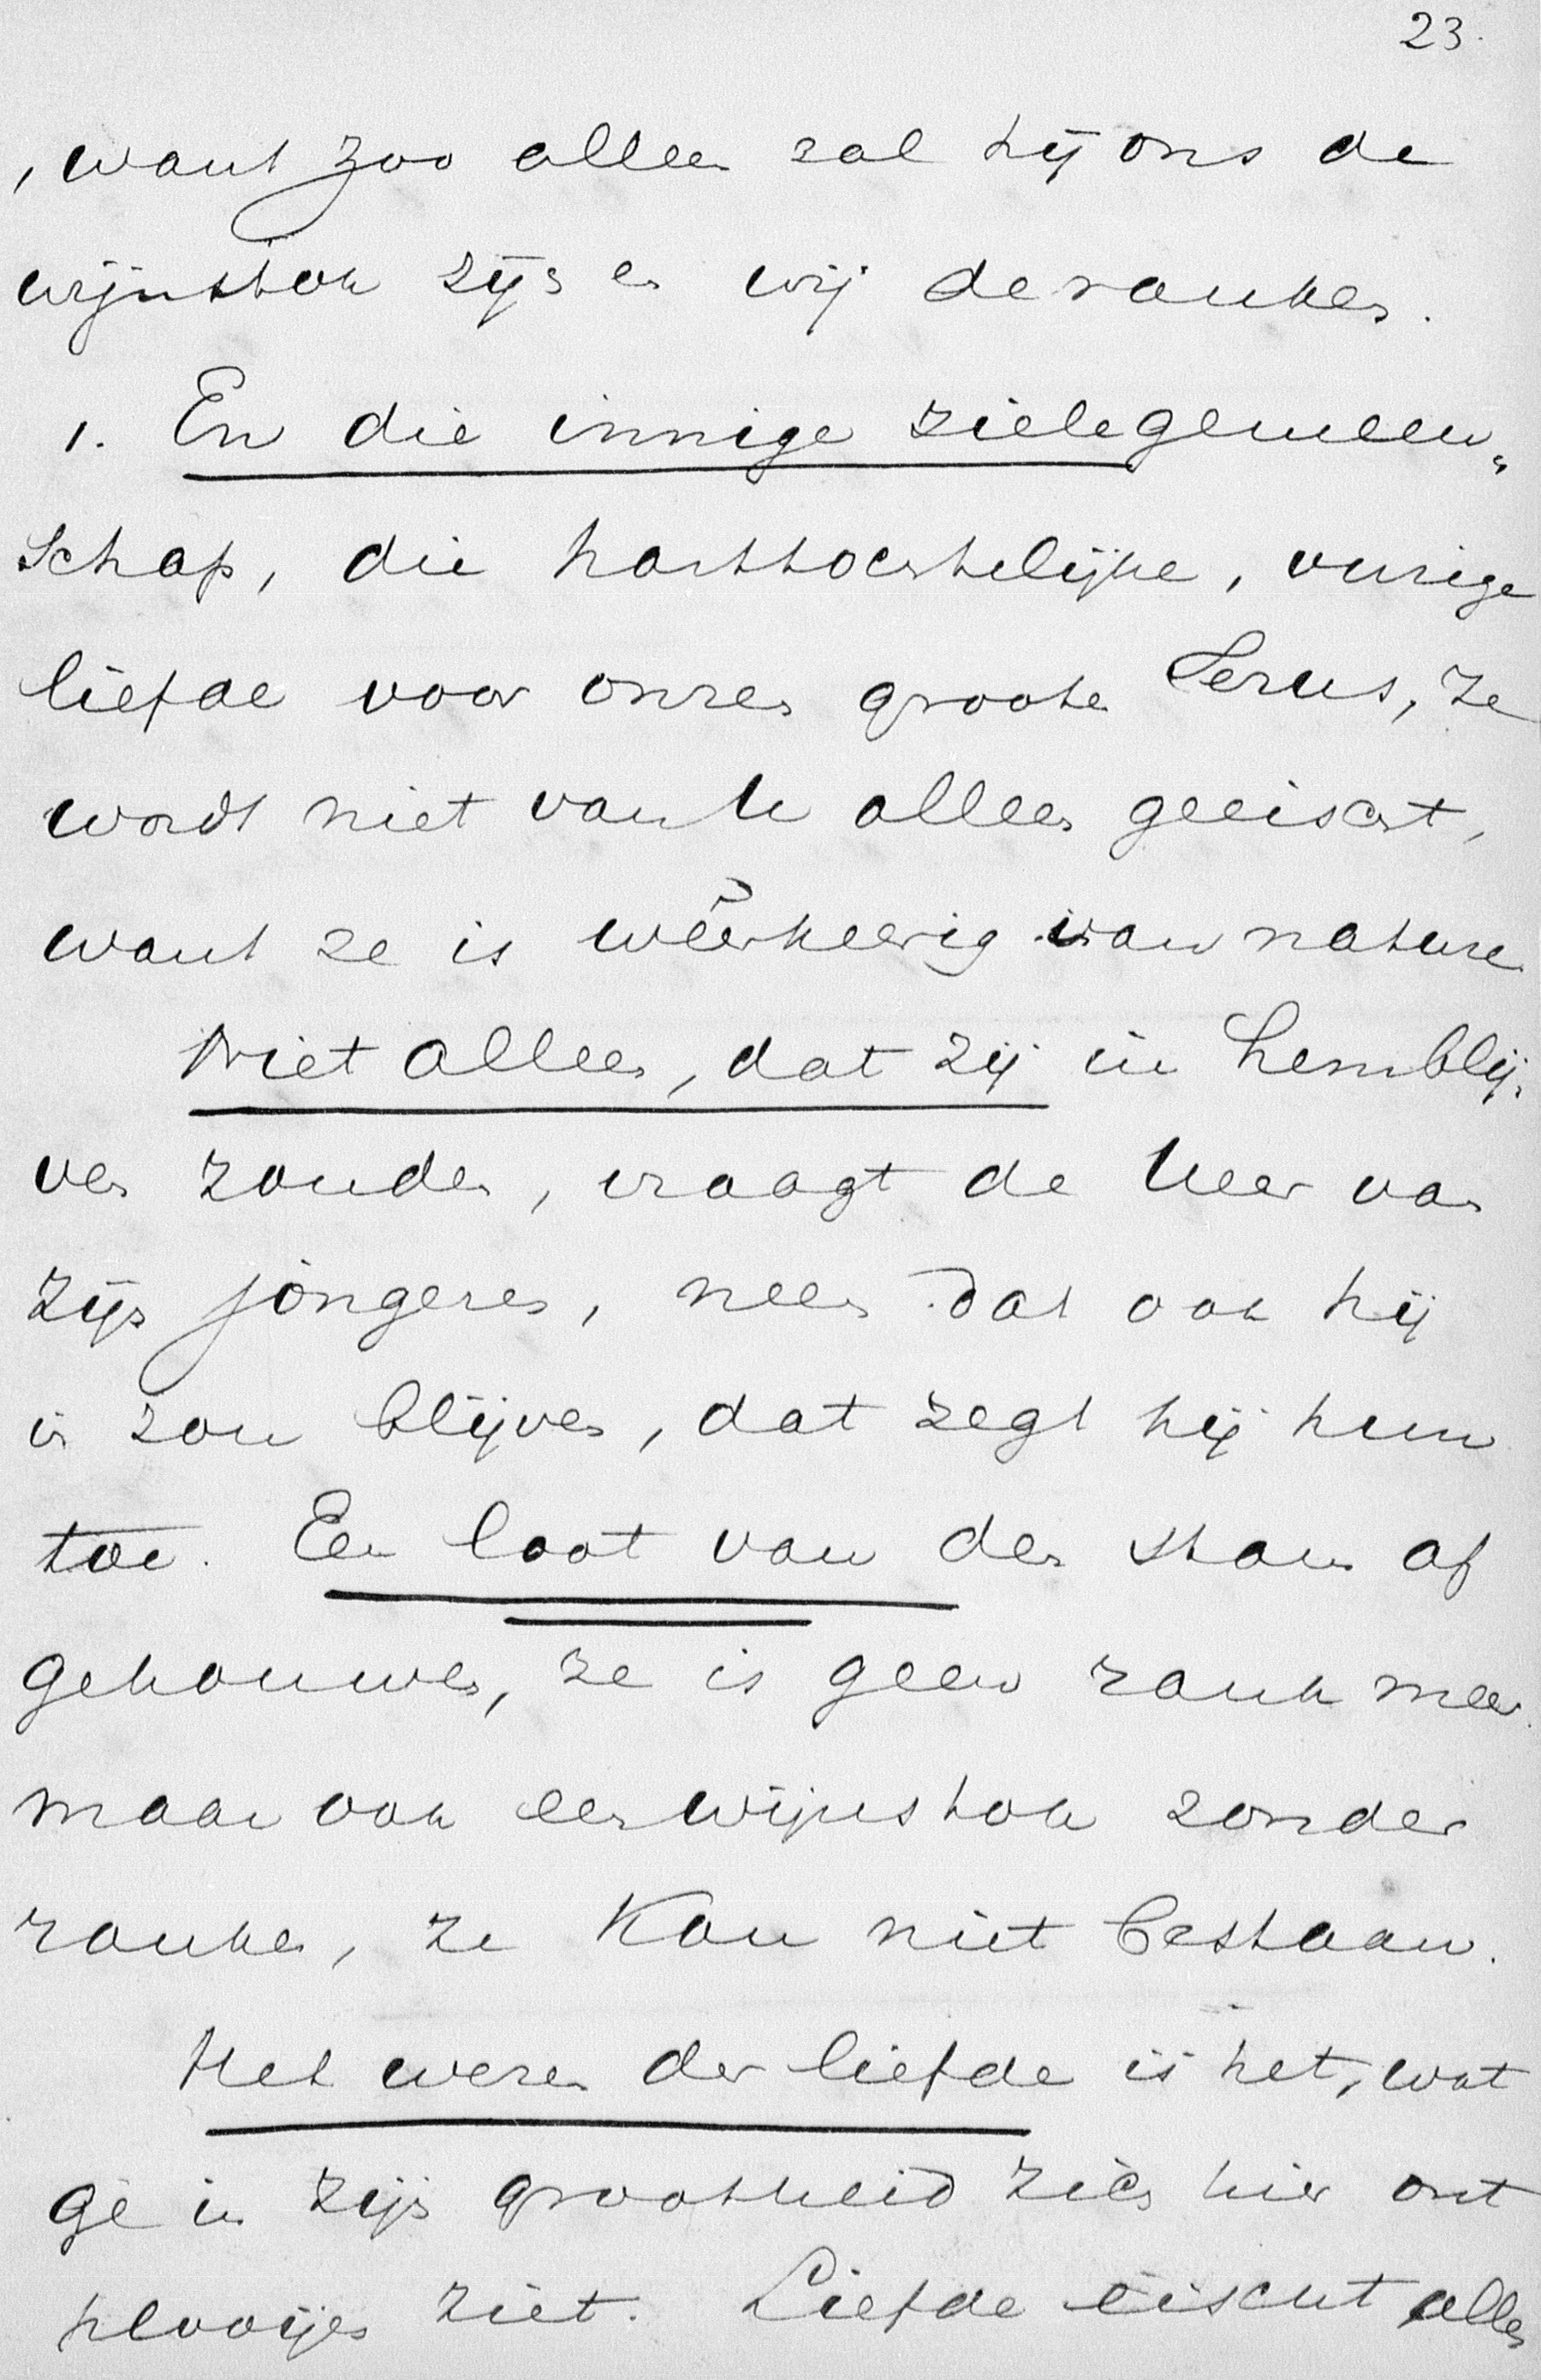 23.
, want zoo alleen zal hij ons de
wijnstok zijn en wij de ranken.
1. En die innige zielsgemeen„
schap, die hartstochtelijke, vurige
liefde voor onzen grooten Jezus, ze
wordt niet van U alleen geeischt,
want ze is wêerkeerig van nature
Niet alleen, dat zij in hem blij„
ven zouden, vraagt de Heer van
zijn jongeren, neen dat ook hij
in zou blijven, dat zegt hij hun
toe. Een loot van den stam af
gehouwen, ze is geen rank meer.
maar ook een wijnstok zonder
ranken, ze kan niet bestaan.
Het wezen der liefde is het, wat
ge in zijn grootheid zich hier ont
plooijen ziet. Liefde eischt alles